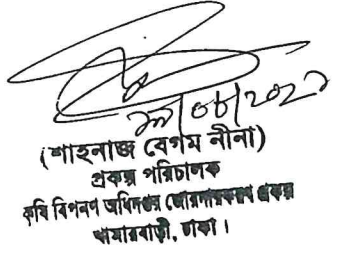 (শাহনাজ বেগম নীনা)
প্রকল্প পরিচালক
কৃষি বিপণন অধিদপ্তর জোরদারকরণ প্রকল্প
খামারবাড়ী, ঢাকা।